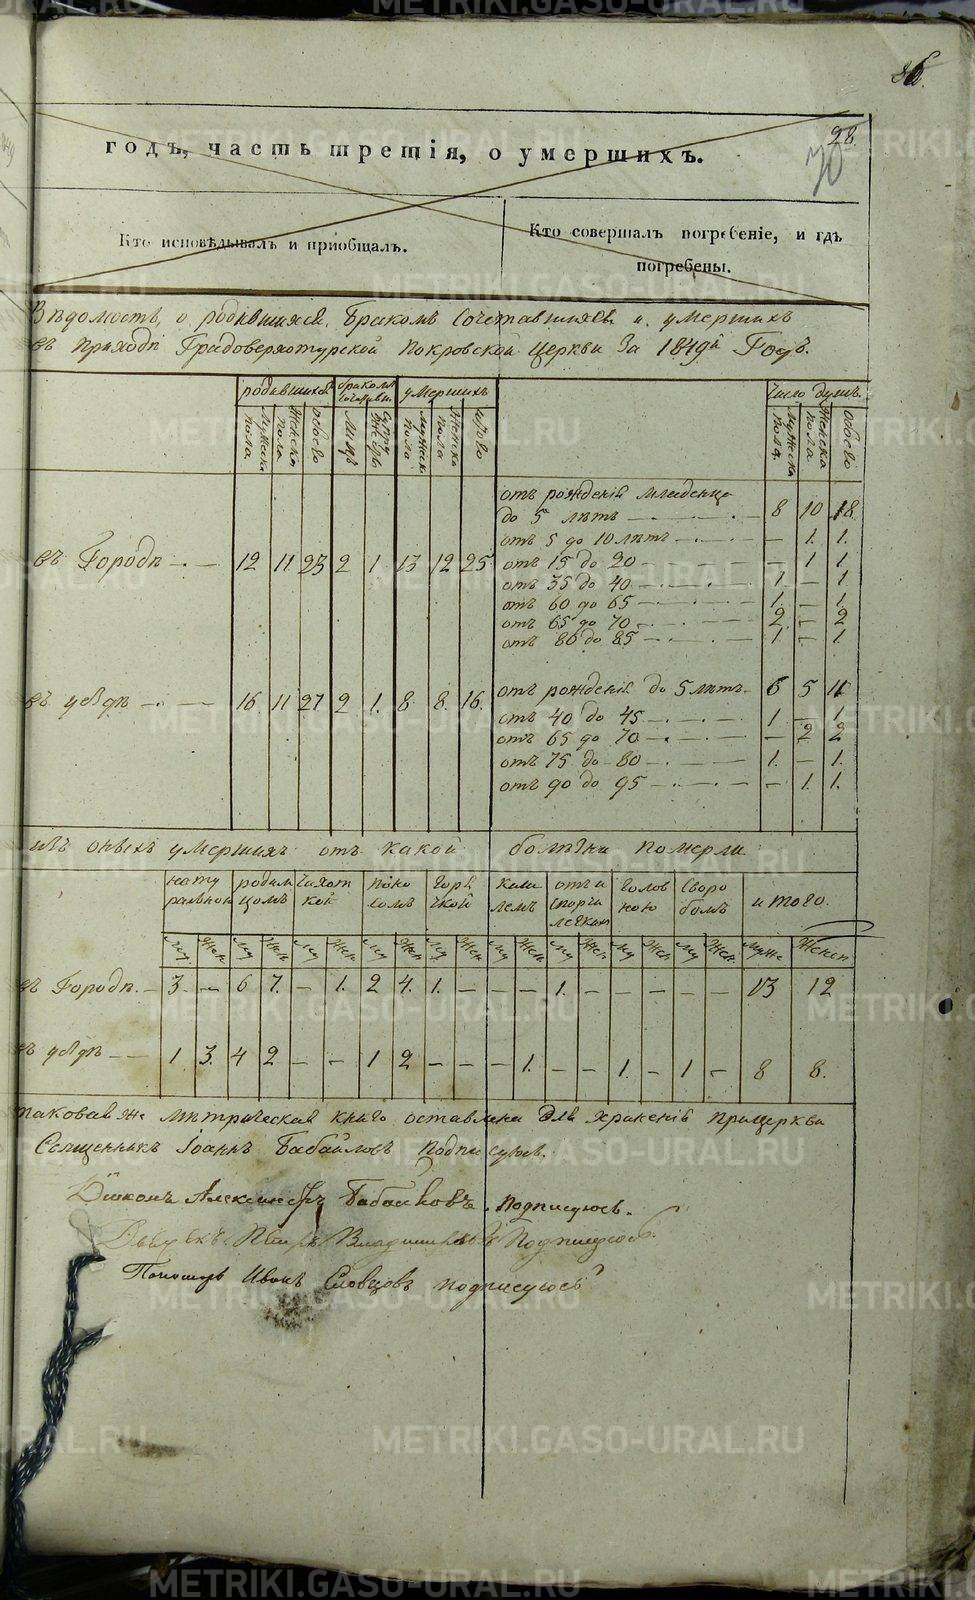 86.
28.
70
годъ, часть третія, о умершихъ.
Кто исповѣдывалъ и пріобщалъ.
Кто совершалъ погребеніе, и гдѣ
погребены.
Вѣдомость, о родившихся, бракомъ сочетавшихся и умершихъ
въ приходѣ Градоверхотурской Покровской церкви за 1849й Годъ.
родившихся бракомъ сочетавши. умершихъ число душъ.
мужска пола женска пола обоего мужска пола женска пола обоего мужска пола женска пола обоего
отъ рожденія младенце
до 5 лѣтъ 8 10 18
отъ 5 до 10 лѣтъ — 1. 1.
въ Городѣ 12 11 23 2 1 13 12 25 отъ 15 до 20 — 1 1
отъ 35 до 40 1 — 1
отъ 60 до 65 1. — 1.
отъ 65 до 70 2 — 2
отъ 80 до 85 1 — 1.
въ уѣздѣ 16 11 27 2 1. 8 8. 16. отъ рожденія до 5 лѣтъ 6 5 11
отъ 40 до 45 1 — 1.
отъ 65 до 70 — 2 2
отъ 75 до 80 1. — 1.
отъ 90 до 95 — 1. 1.
изъ оныхъ умершихъ отъ какой болѣзни померли
нату родим чахот поно горя каш отъ и голов воро и того.
ральною цомъ кой сомъ чкой лемъ ною бомъ
му жен му жен му жен му жен му жен му жен му жен му жен му жен муж женск
въ Городѣ 3 — 6 7. — 1. 2 4. 1. — — — 1. — — — — — 13 12
въ уѣздѣ 1 3. 4 2 — — 1 2 — — — 1. — — 1. — 1 — 8 8.
таковая же метрическая книга оставлена для храненія при церкви
Священникъ Іоаннъ Бабайловъ подписуюсь.
Дьяконъ Александръ Бабайловъ подписуюсь.
Петръ подписуюсь.
Пономарь Иванъ Словцовъ подписуюсь
METRIKI.GASO-URAL.RU